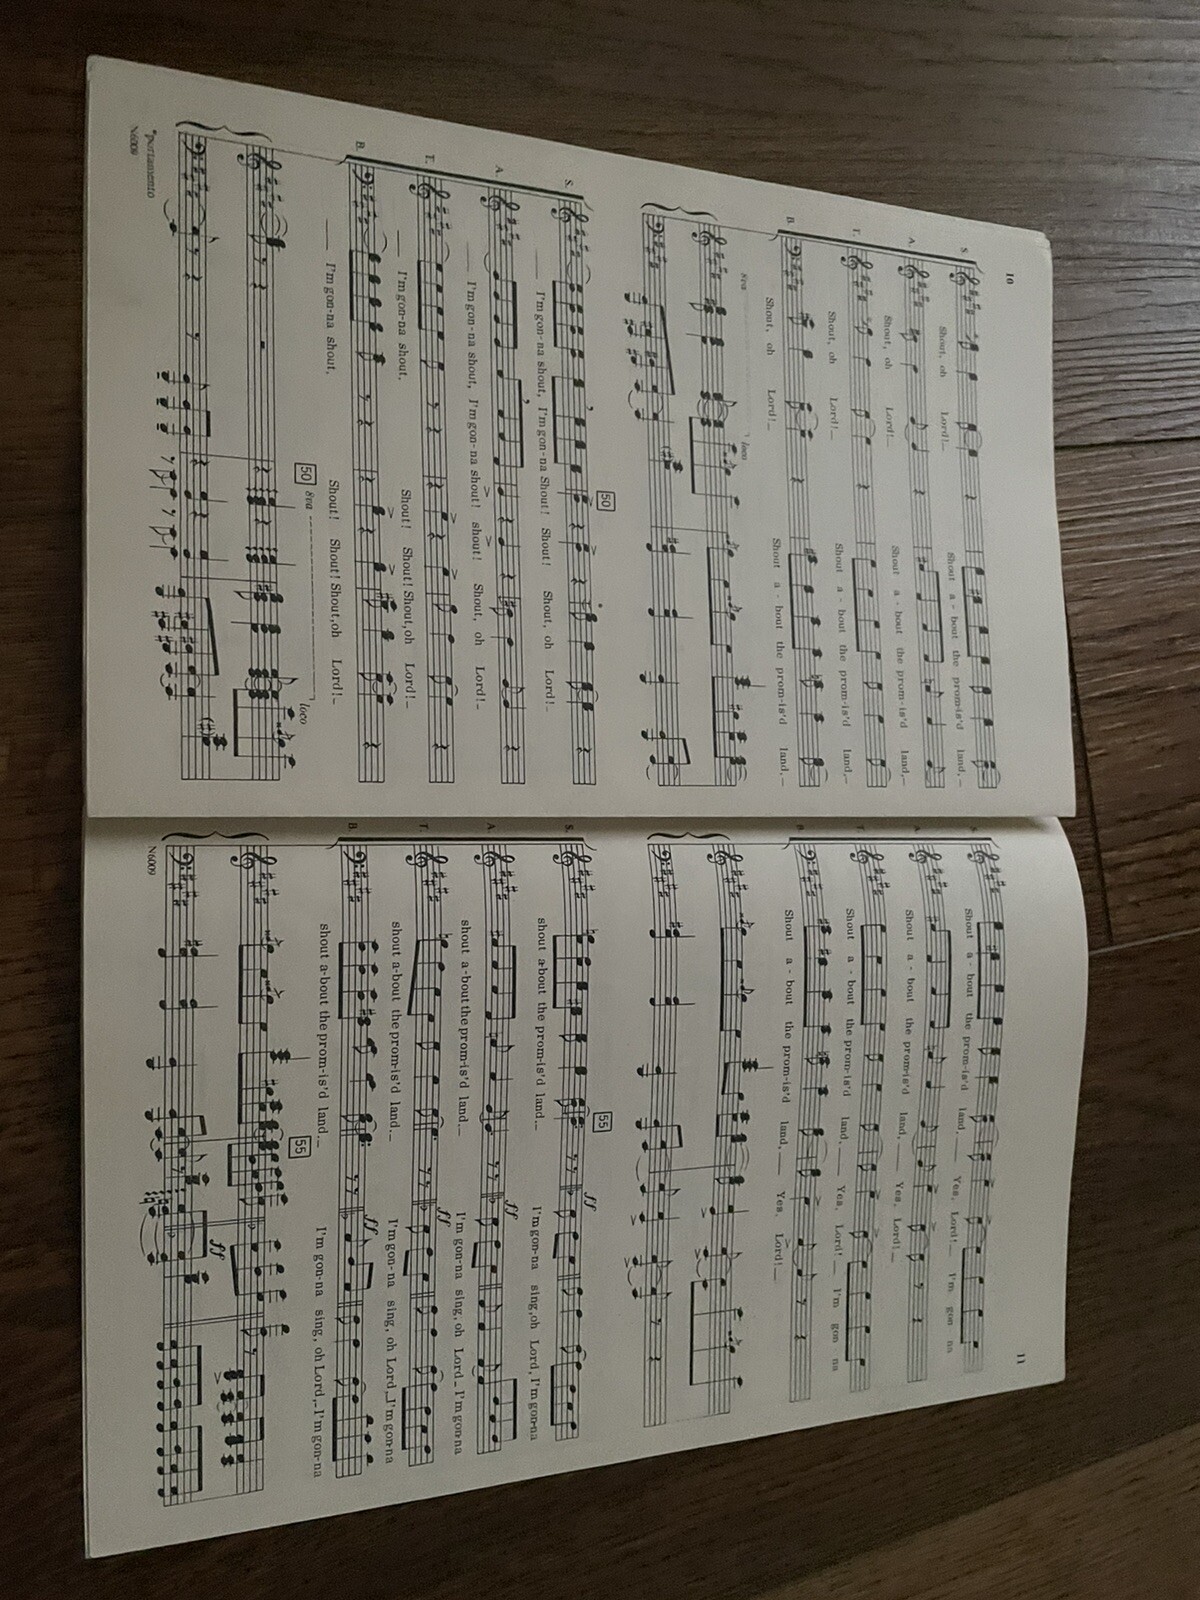 10
S.
Shout, oh Lord!_ Shout a - bout the prom-is'd land,_
A.
Shout, oh Lord!_ Shout a - bout the prom-is'd land,_
T.
Shout, oh Lord!_ Shout a - bout the prom-is'd land,_
B.
Shout, oh Lord!_ Shout a - bout the prom-is'd land,_
8va loco
50
S.
I'm gon-na shout, I'm gon-na Shout! Shout! Shout, oh Lord!_
A.
I'm gon-na shout, I'm gon-na shout! shout! Shout, oh Lord!_
T.
I'm gon-na shout. Shout! Shout! Shout, oh Lord!_
B.
I'm gon-na shout. Shout! Shout! Shout, oh Lord!_
50 8va loco
*portamento
N6009
11
S.
Shout a - bout the prom-is'd land,_ Yes, Lord!_ I'm gon na
A.
Shout a - bout the prom-is'd land,_ Yes, Lord!_
T.
Shout a - bout the prom-is'd land,_ Yes, Lord!_ I'm gon na
B.
Shout a - bout the prom-is'd land,_ Yes, Lord!_
55
ff
S.
shout a-bout the prom-is'd land._ I'm gon-na sing, oh Lord, I'm gon-na
ff
A.
shout a-bout the prom-is'd land._ I'm gon-na sing, oh Lord_ I'm gon-na
ff
T.
shout a-bout the prom-is'd land._ I'm gon-na sing, oh Lord_ I'm gon-na
ff
B.
shout a-bout the prom-is'd land._ I'm gon-na sing, oh Lord,_ I'm gon-na
55
ff
N6009